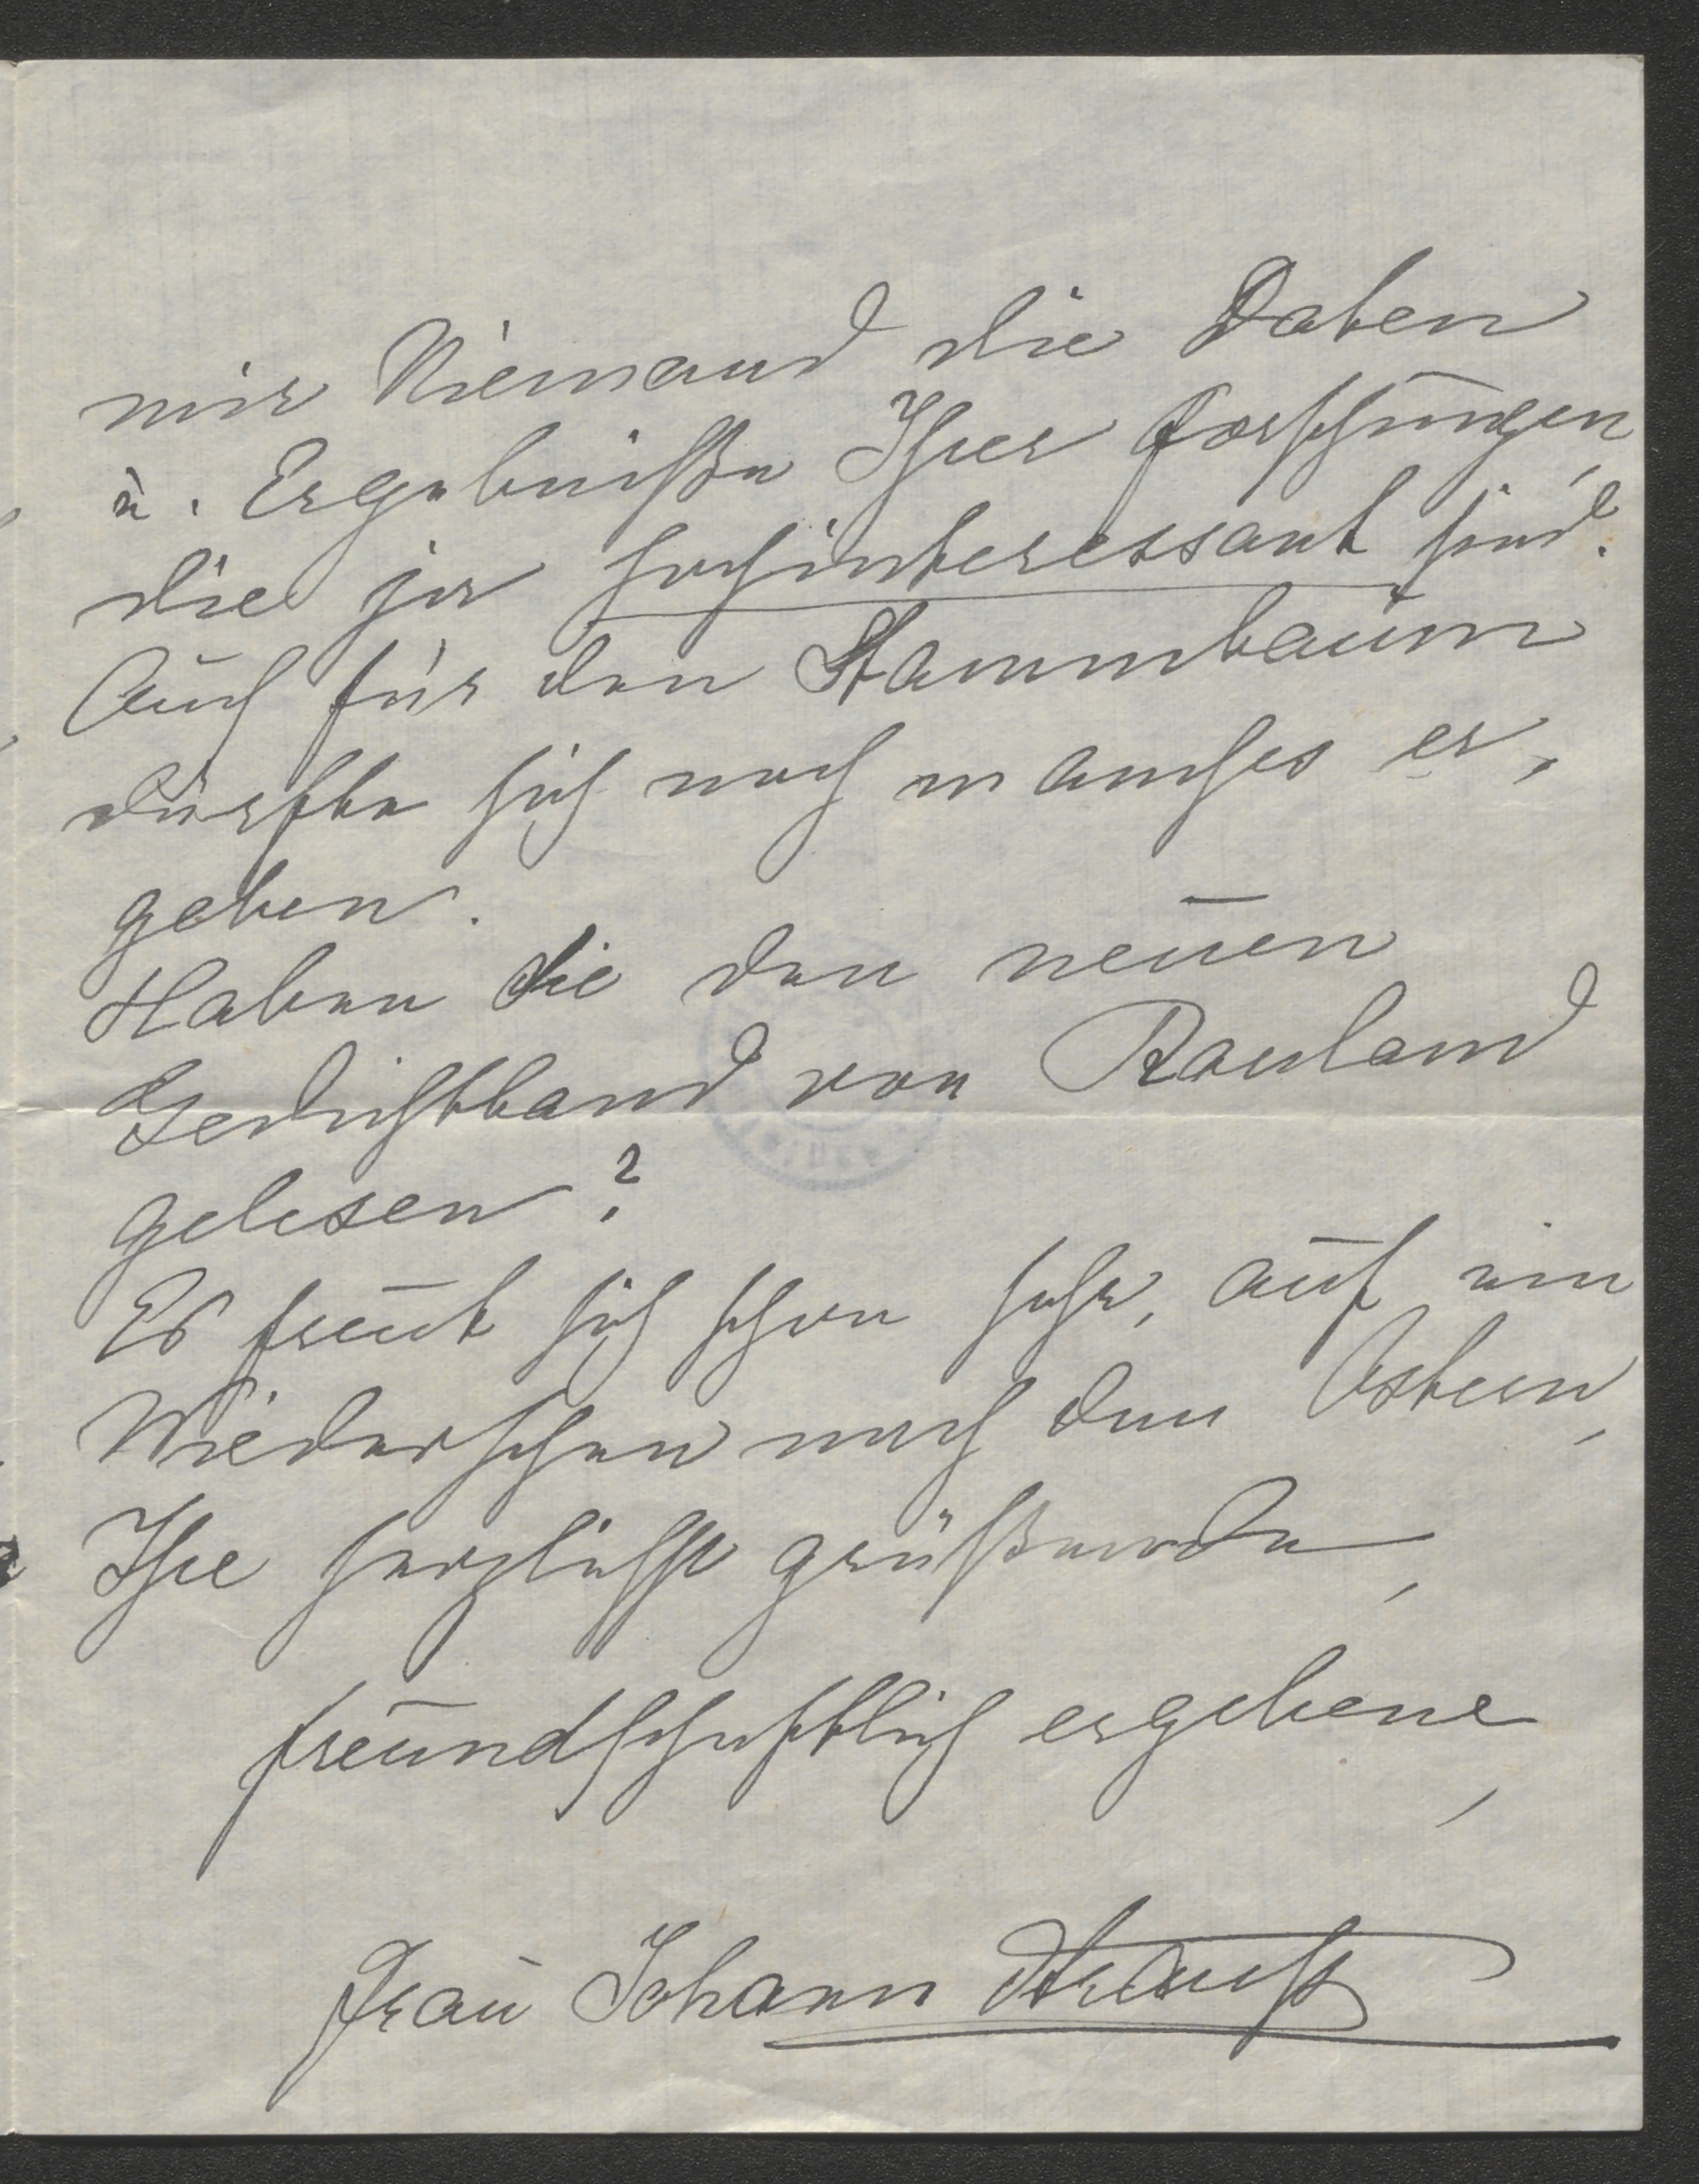 mir Niemand die Daten
u. Ergebnisse Ihrer Forschungen,
die ja hochinteressant sind.
Auch für den Stammbaum
dürfte sich noch manches er-
geben.
Haben Sie den neuen
Gedichtband von Rauland
gelesen?
Es freut sich schon sehr, auf ein
Wiedersehen nach den Ostern,
Ihre herzlichst grüßende,
freundschaftlich ergebene,
Frau Johann Strauß